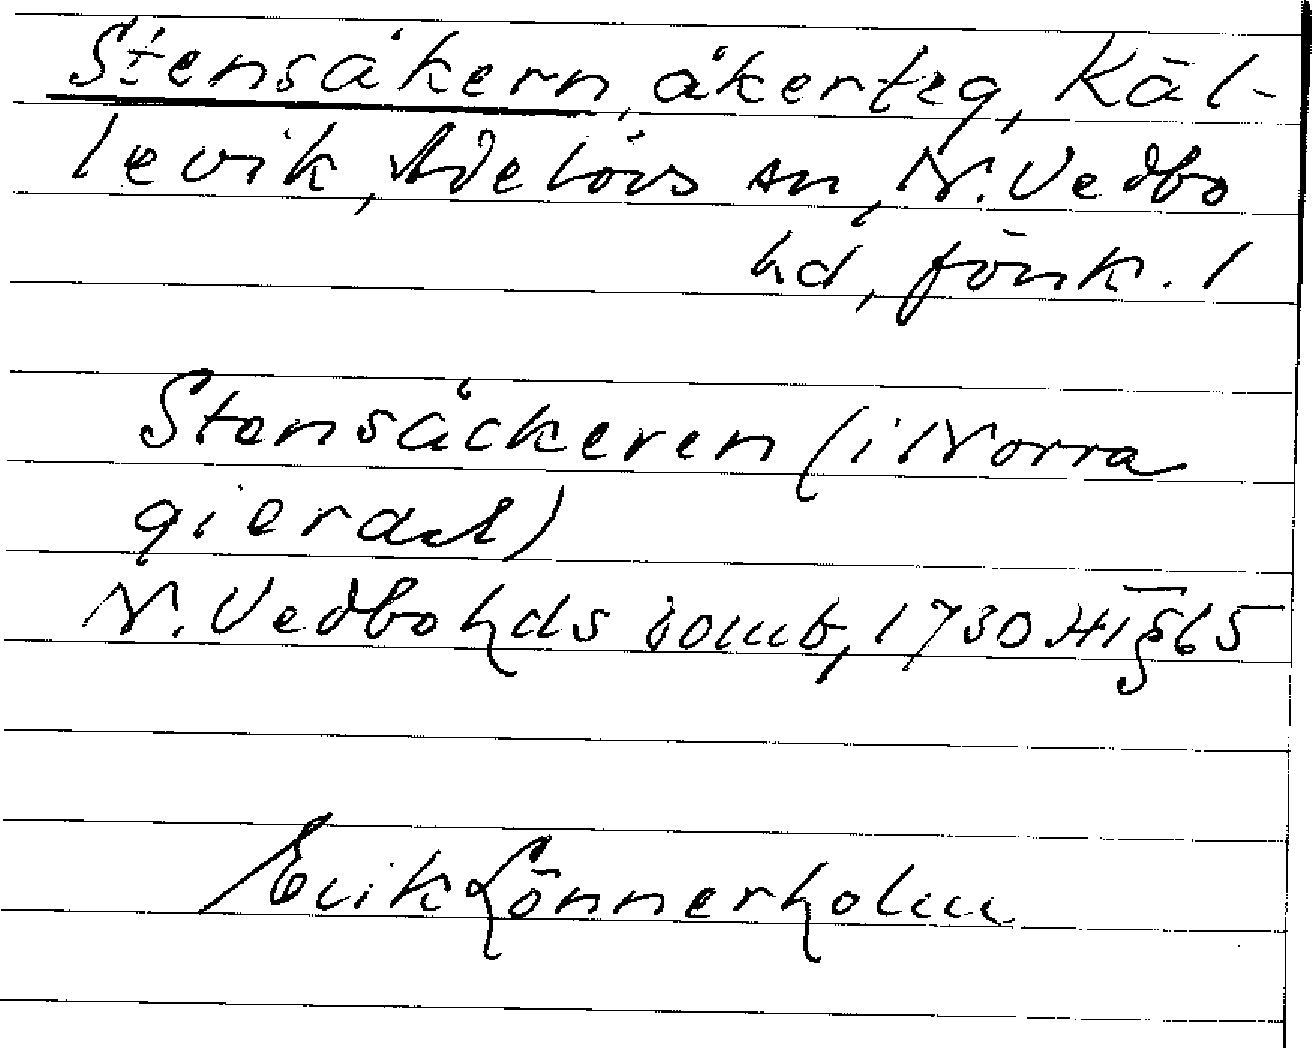 Stensåkern, åkerteg, Käl-
levik, Adelövs sn, N. Vedbo
hd, Jönk. l
Stensåckeren (i Norra
gierdet)
N. Vedbo hds domb, 1730 HT § 65
Erik Lönnerholm